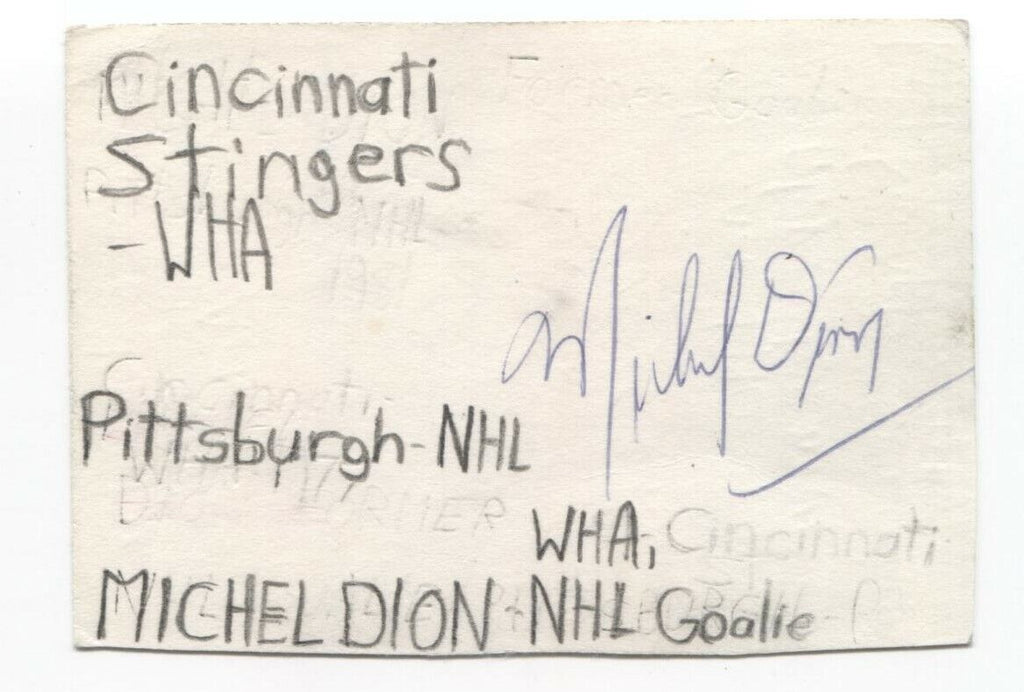 Cincinnati
Stingers
-WHA
Michel Dion
Pittsburgh-NHL
WHA, Cincinnati
MICHEL DION-NHL Goalie